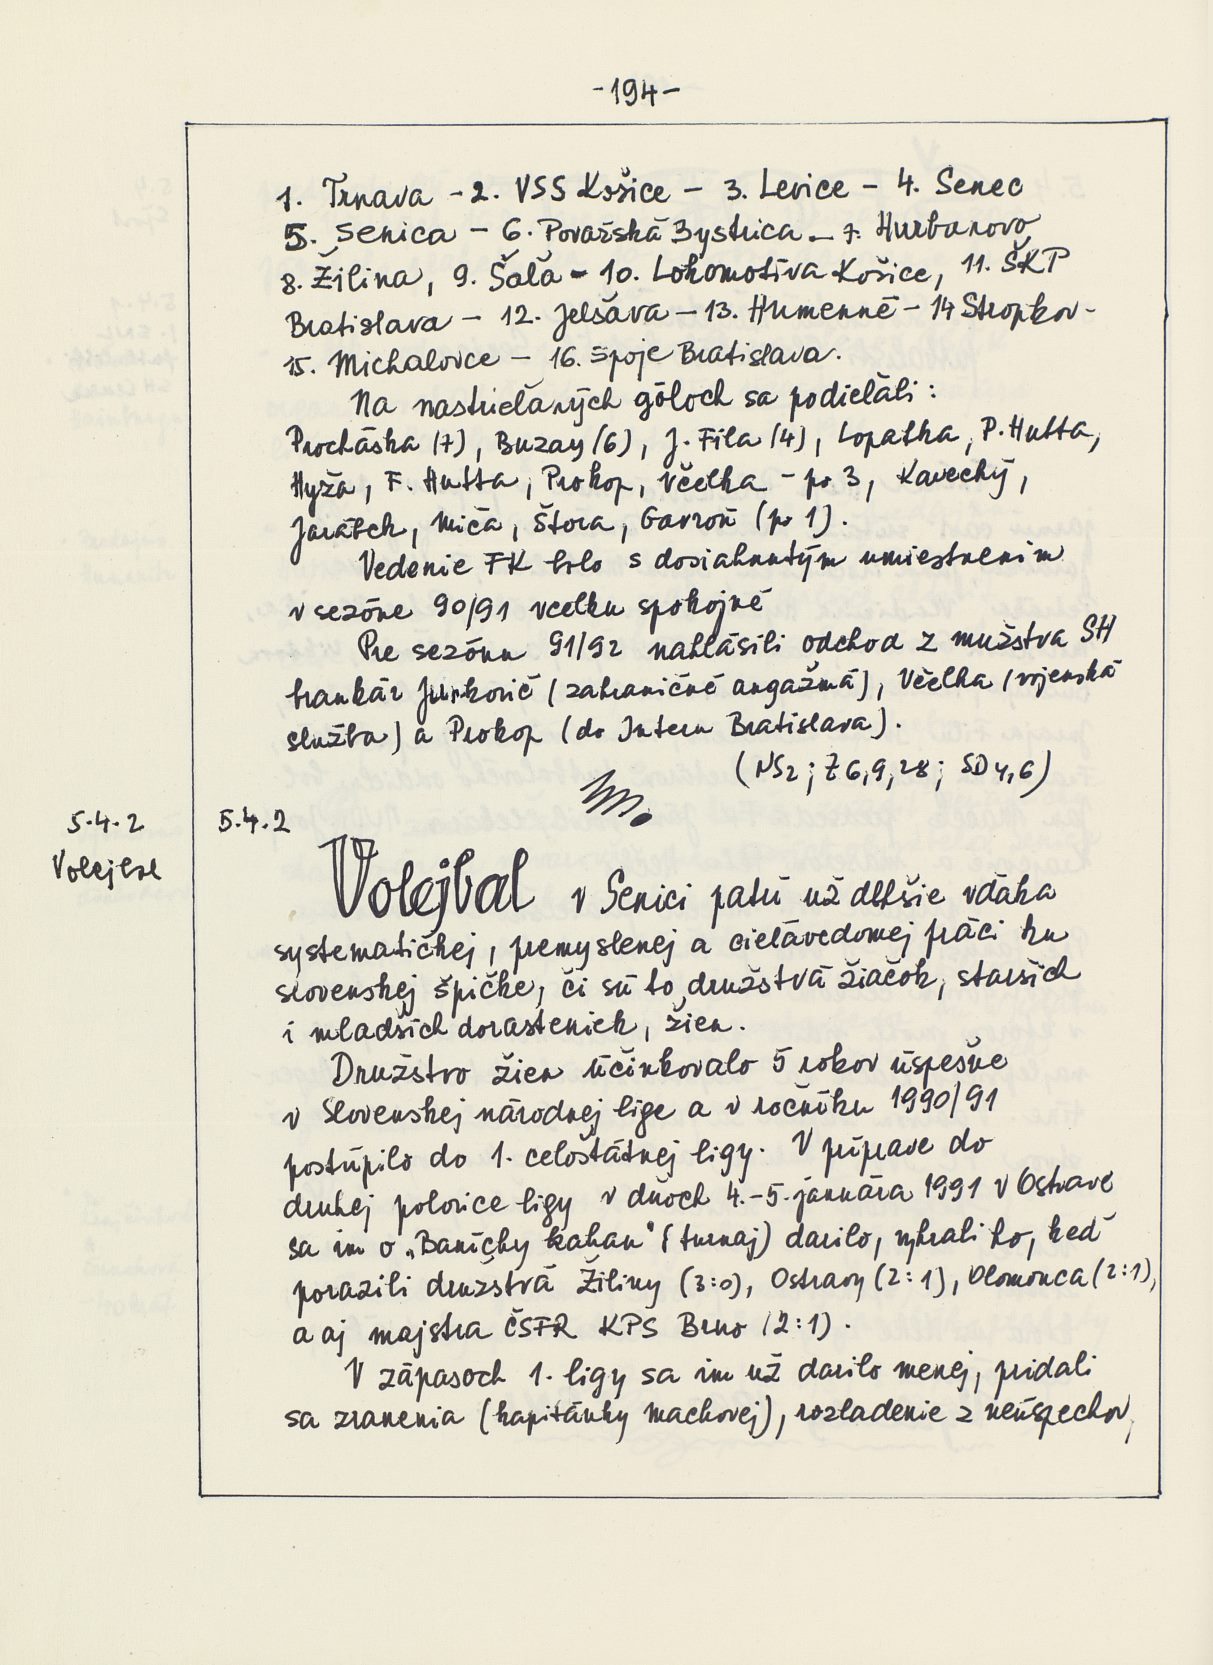 -194-
1. Trnava - 2. VSS Košice - 3. Levice - 4. Senec
5. Senica - 6. Považská Bystrica - 7. Hurbanovo
8. Žilina, 9. Šaľa - 10. Lokomotíva Košice, 11. ŠKP
Bratislava - 12. Jelšava - 13. Humenné - 14 Stropkov -
15. Michalovce - 16. Spoje Bratislava.
Na nastrieľaných góloch sa podieľali:
Procháska (7), Buzay (6), J. Fila (4), Lopatka, P. Hutta,
Hyža, F. Hutta, Prokop, Včelka - po 3, Kavecký,
Jurášek, Miča, Štora, Gavroň (po 1).
Vedenie FK bolo s dosiahnutým umiestnením
v sezóne 90/91 vcelku spokojné
Pre sezónu 91/92 nahlásili odchod z mužstva SH
brankár Jurkovič (zahraničné angažmá), Včelka (vojenská
služba) a Prokop (do Interu Bratislava).
(NS2; Z 6,9,28; SD 4,6)
5.4.2 5.4.2
Volejbal
Volejbal v Senici patrí už dlhšie vďaka
systematičkej, premyslenej a cieľavedomej práci ku
slovenskej špičke, či sú to družstvá žiačok, starších
i mladších dorasteniek, žien.
Družstvo žien účinkovalo 5 rokov úspešne
v Slovenskej národnej lige a v ročníku 1990/91
postúpilo do 1. celoštátnej ligy. V príprave do
druhej polovice ligy v dňoch 4.-5. januára 1991 v Ostrave
sa im o „Banícky kahan" (turnaj) darilo, vyhrali ho, keď
porazili družstvá Žiliny (3:0), Ostravy (2:1), Olomouca (2:1),
a aj majstra ČSFR KPS Brno (2:1).
V zápasoch 1. ligy sa im už darilo menej, pridali
sa zranenia (kapitánky Machovej), rozladenie z neúspechov,